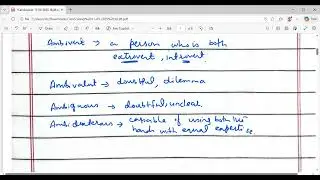 Ambivert → a person who is both
extrovert, introvert
Ambivalent → doubtful, dilemma
Ambiguous → doubtful, unclear.
Ambidexterous → capable of using both his
hands with equal expertise.